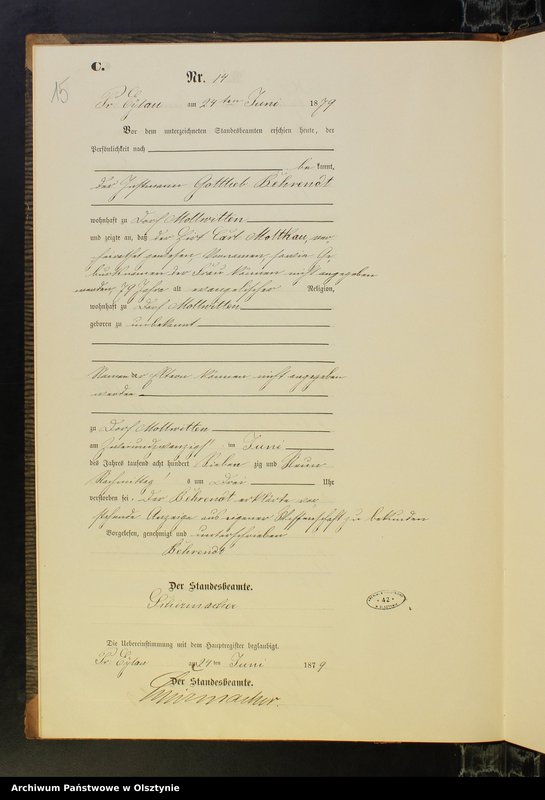 C.
15
Nr. 14
Pr. Eylau am 24 ten Juni 1879
Vor dem unterzeichneten Standesbeamten erschien heute, der
Persönlichkeit nach
bekannt,
der Instmann Gottlieb Behrendt
wohnhaft zu Dorf Mollwitten
und zeigte an, daß der Hirt Carl Mottkau, ver-
heirathet gewesen, Vornamen sowie Ge-
burtsnamen der Frau können nicht angegeben
werden, 79 Jahre alt evangelischer Religion,
wohnhaft zu Dorf Mollwitten
geboren zu unbekannt
Namen der Eltern können nicht angegeben
werden
zu Dorf Mollwitten
am zweiundzwanzigsten Juni
des Jahres tausend acht hundert siebenzig und neun
Nachmittags um drei Uhr
verstorben sei. Der Behrendt erklärte vor-
stehende Anzeige aus eigener Wissenschaft zu bekunden
Vorgelesen, genehmigt und unterschrieben
Behrendt
Der Standesbeamte.
Schirrmacher
42
Die Uebereinstimmung mit dem Hauptregister beglaubigt.
Pr. Eylau am 24 ten Juni 1879
Der Standesbeamte.
Schirrmacher.
Archiwum Państwowe w Olsztynie